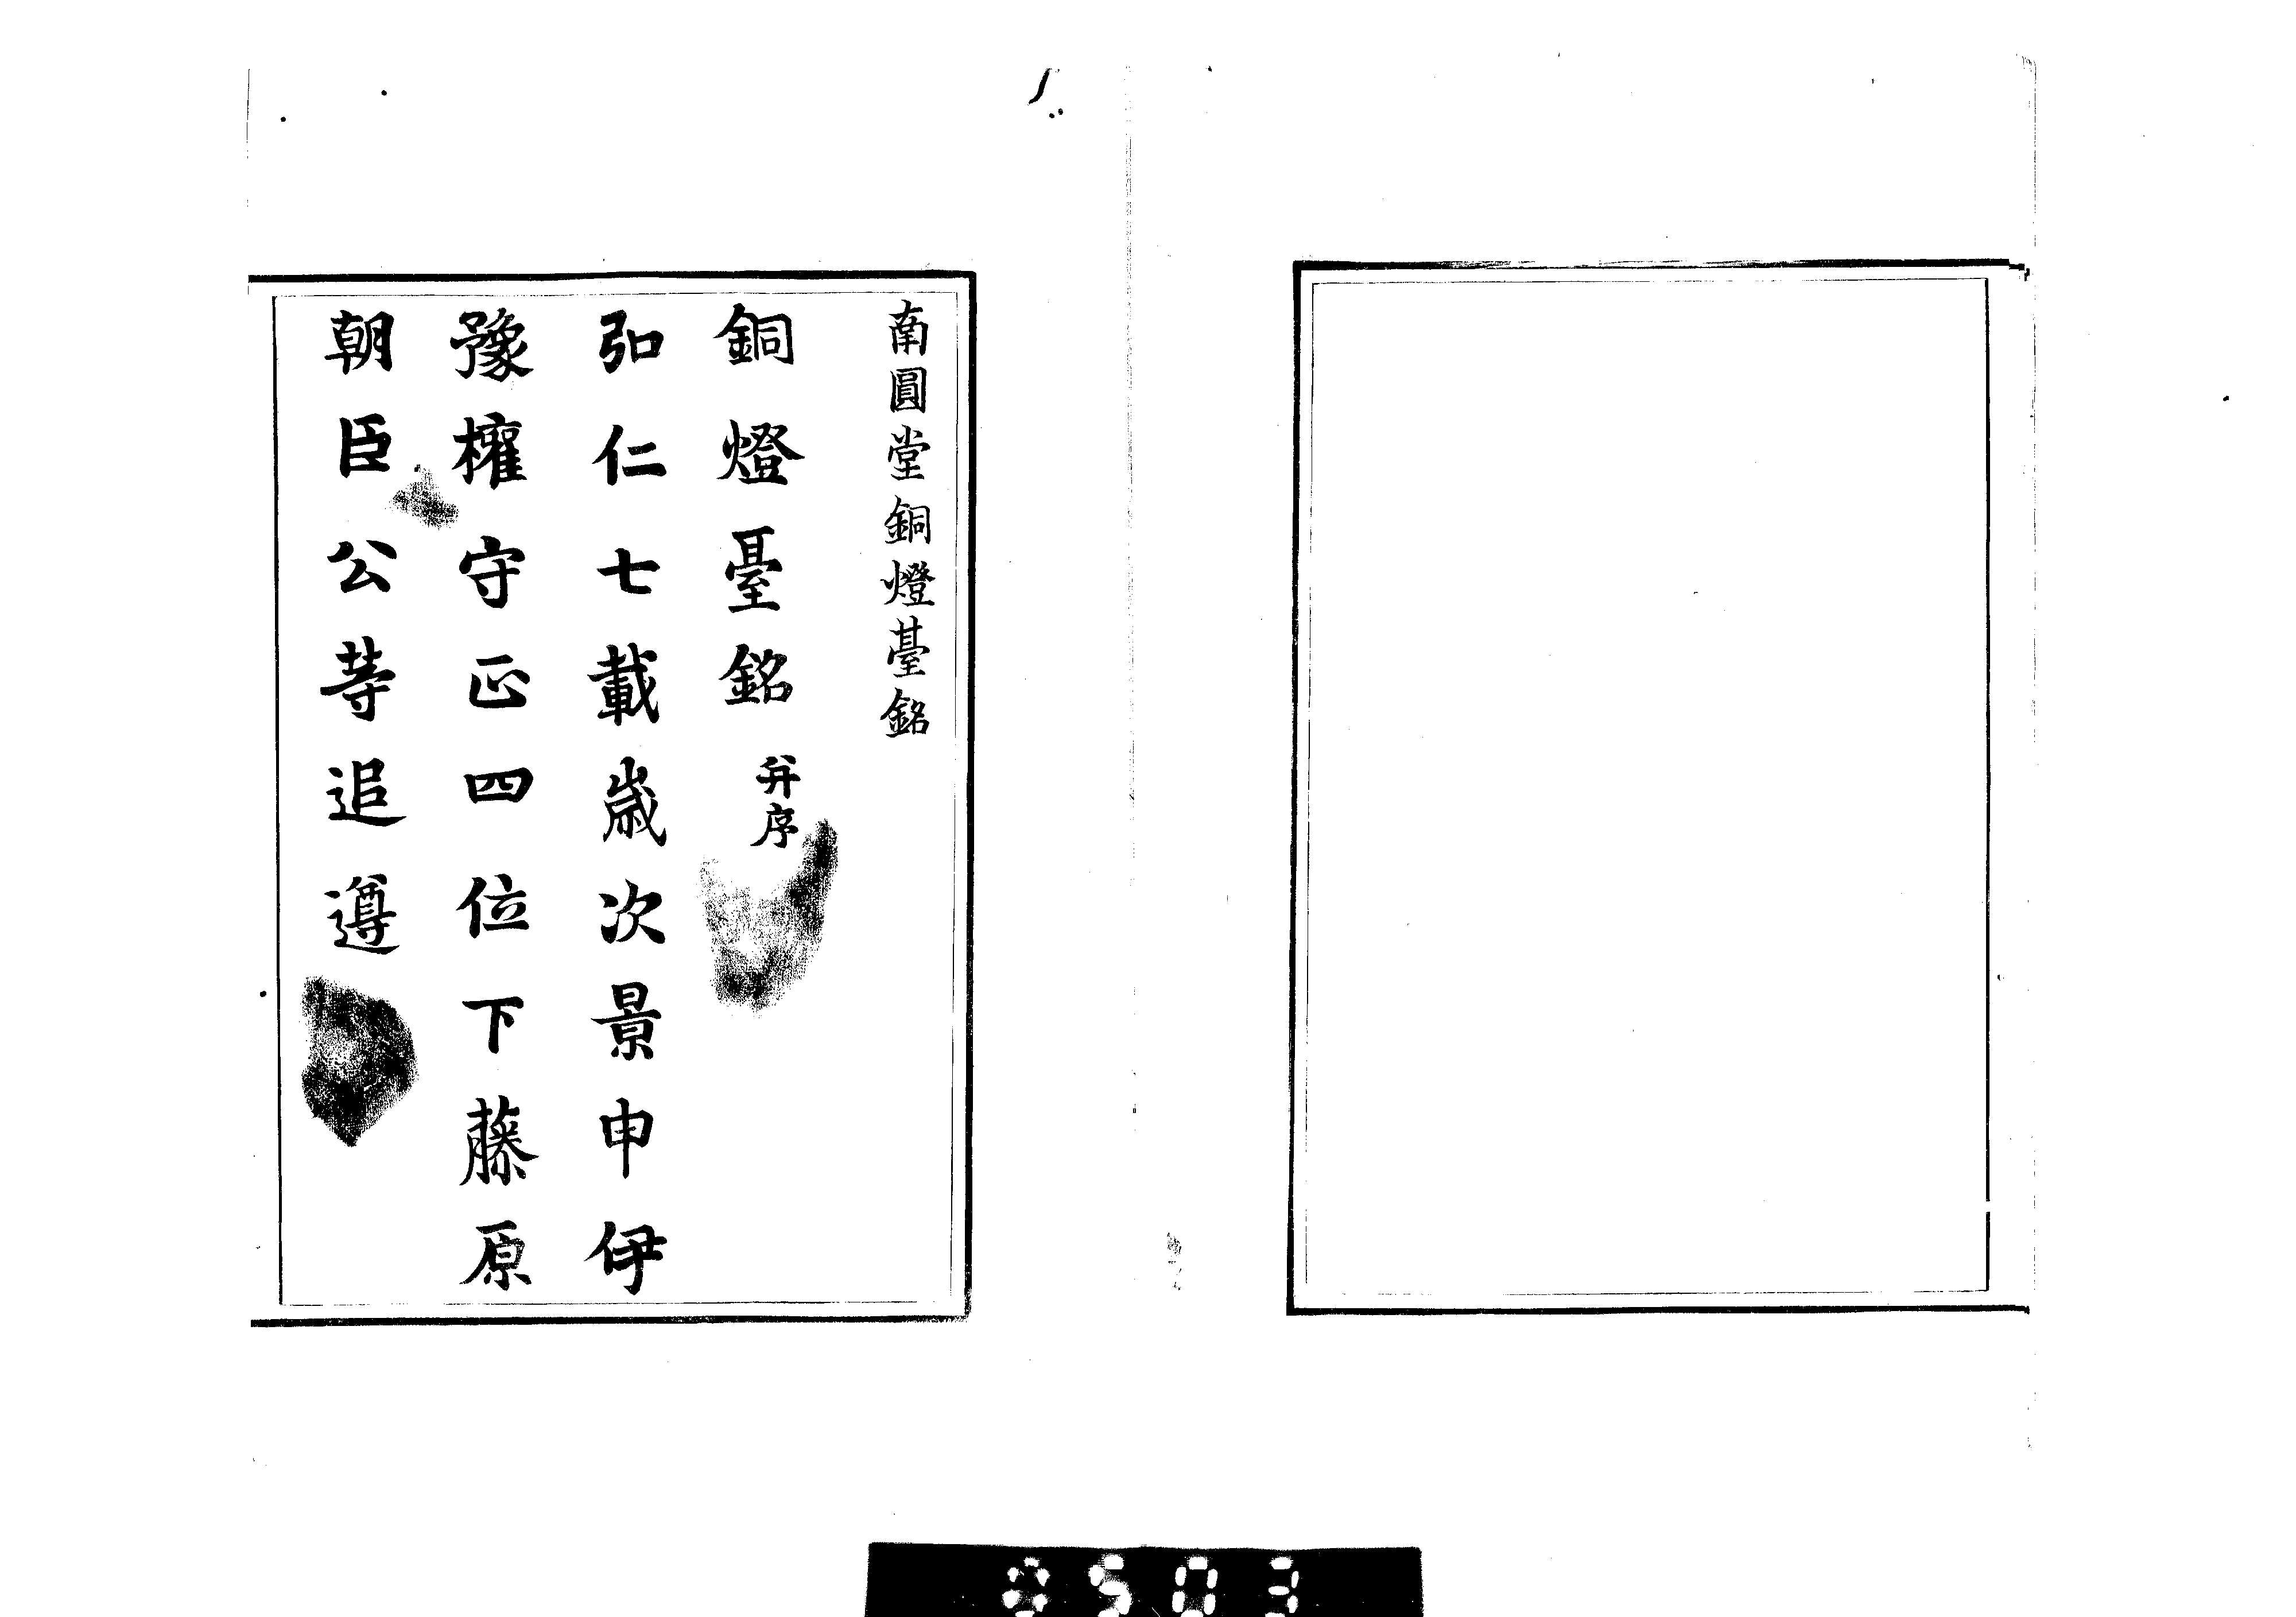 南圓堂銅燈臺銘
銅燈臺銘 并序
弘仁七載歳次景申伊
豫權守正四位下藤原
朝臣公等追遵